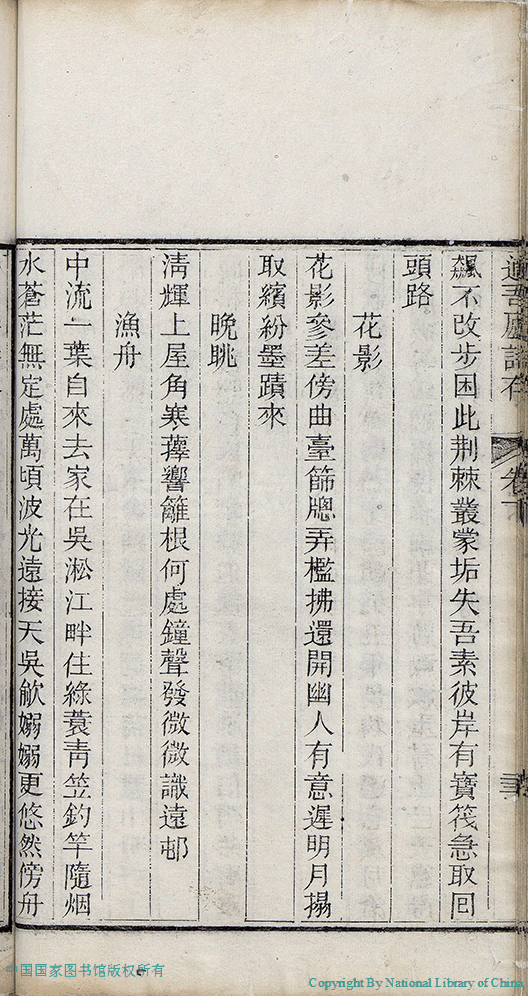 適吾廬詩存 卷下
飆不改步困此荆棘叢蒙垢失吾素彼岸有寶筏急取回
頭路
花影
花影參差傍曲臺篩牕弄檻拂還開幽人有意遲明月搨
取繽紛墨蹟來
晩眺
淸輝上屋角寒蘀響籬根何處鐘聲發微微識遠邨
漁舟
中流一葉自來去家在吳淞江畔住綠蓑靑笠釣竿隨烟
水蒼茫無定處萬頃波光遠接天吳歈嫋嫋更悠然傍舟
中国国家图书馆版权所有
Copyright By National Library of China